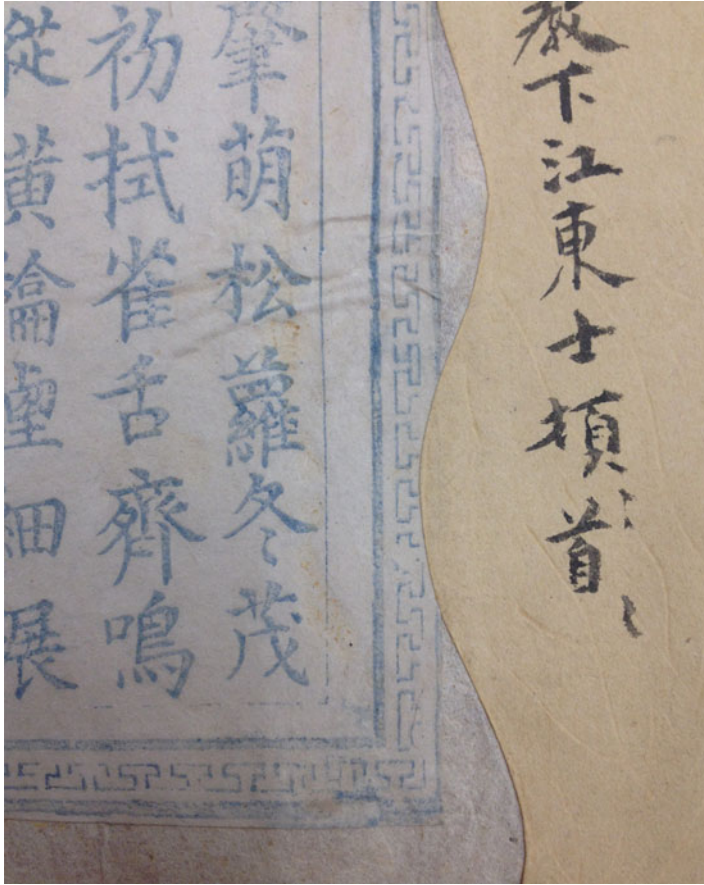 教下江東士頓〻首〻
肇萌松蘿冬茂
初拭雀舌齊鳴
從黃瀹細展